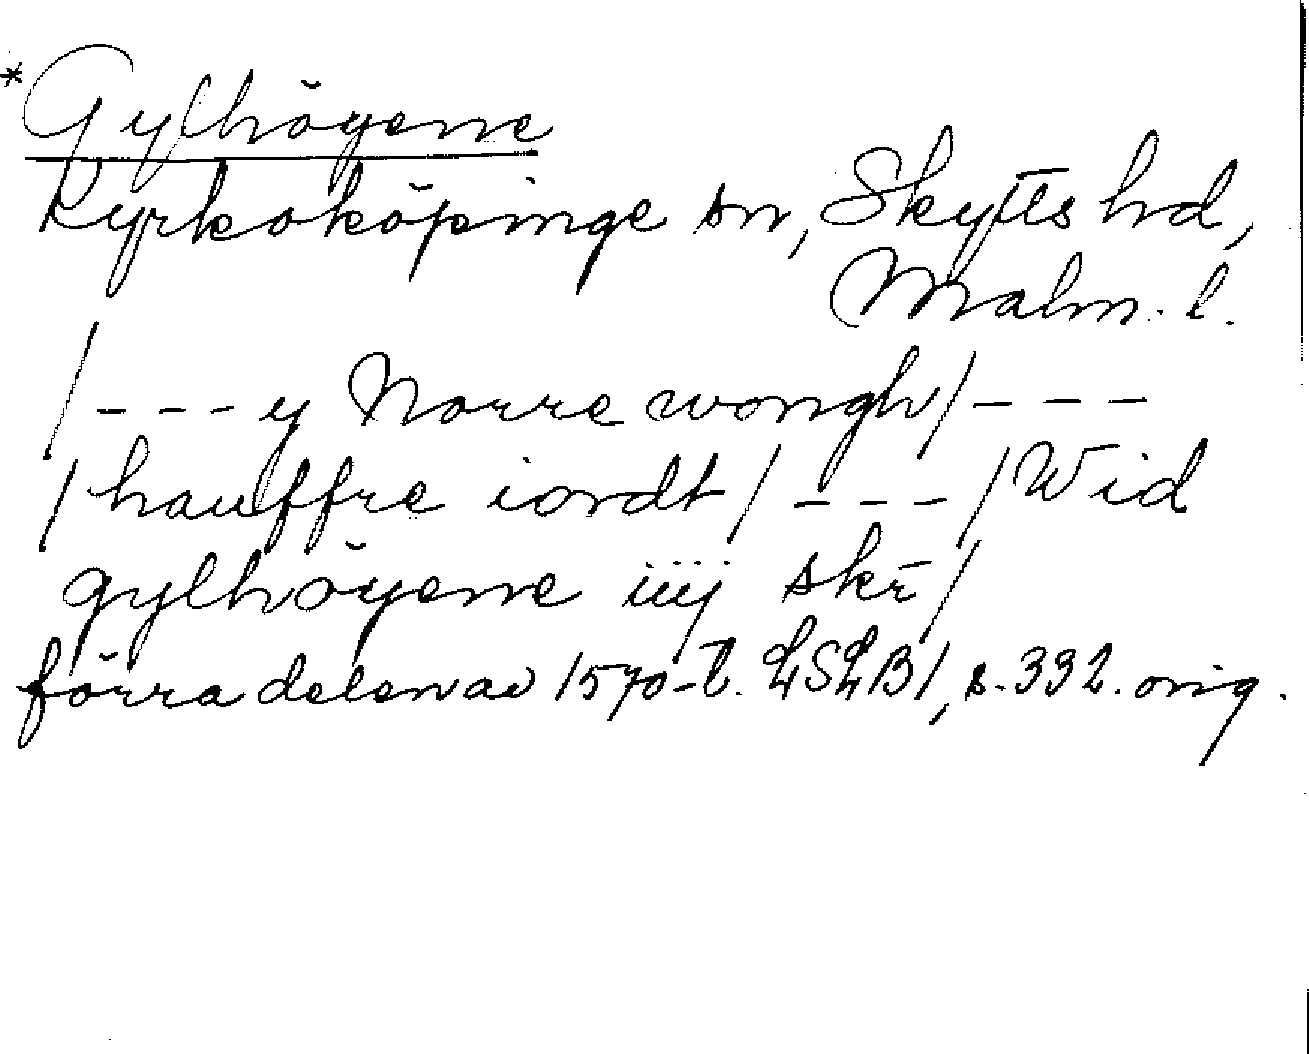 *Gylhöyene
Kyrkoköpinge sn, Skytts hd,
Malm. l.
/--- y Norre wongh/---
/hauffre iordt/ --- /Wid
gylhöyene iiij skr/
förra delen av 1570-t. LSLB1, s. 332. orig.